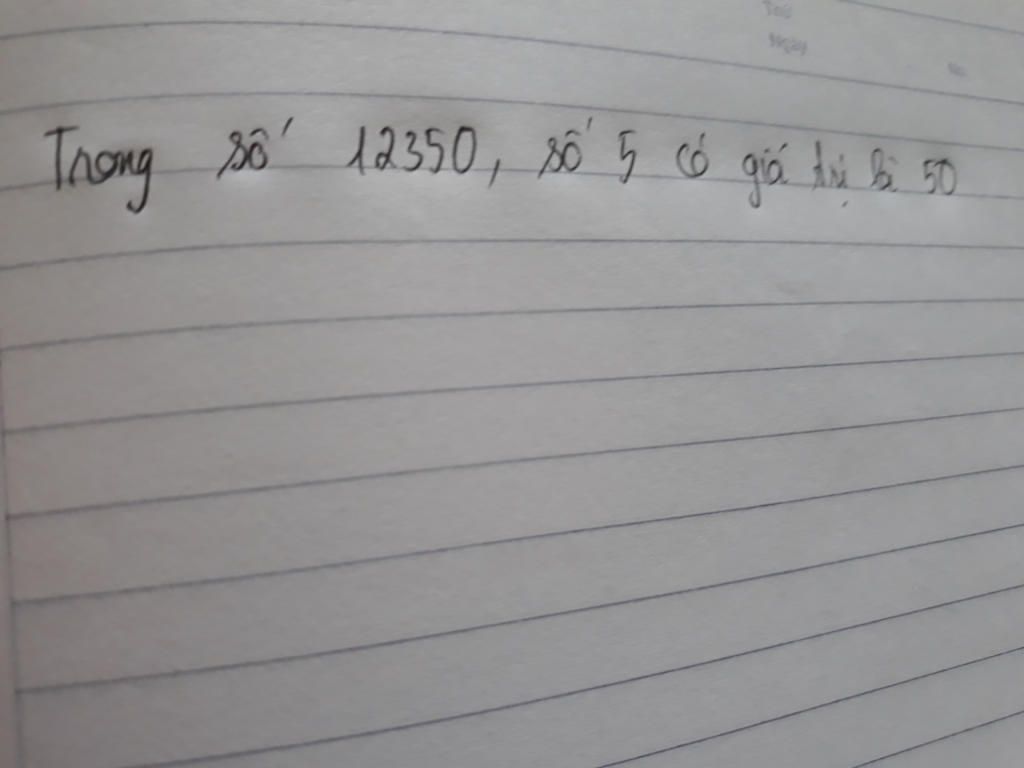 Thứ
Ngày
No.
Trong số 12350, số 5 có giá trị là 50